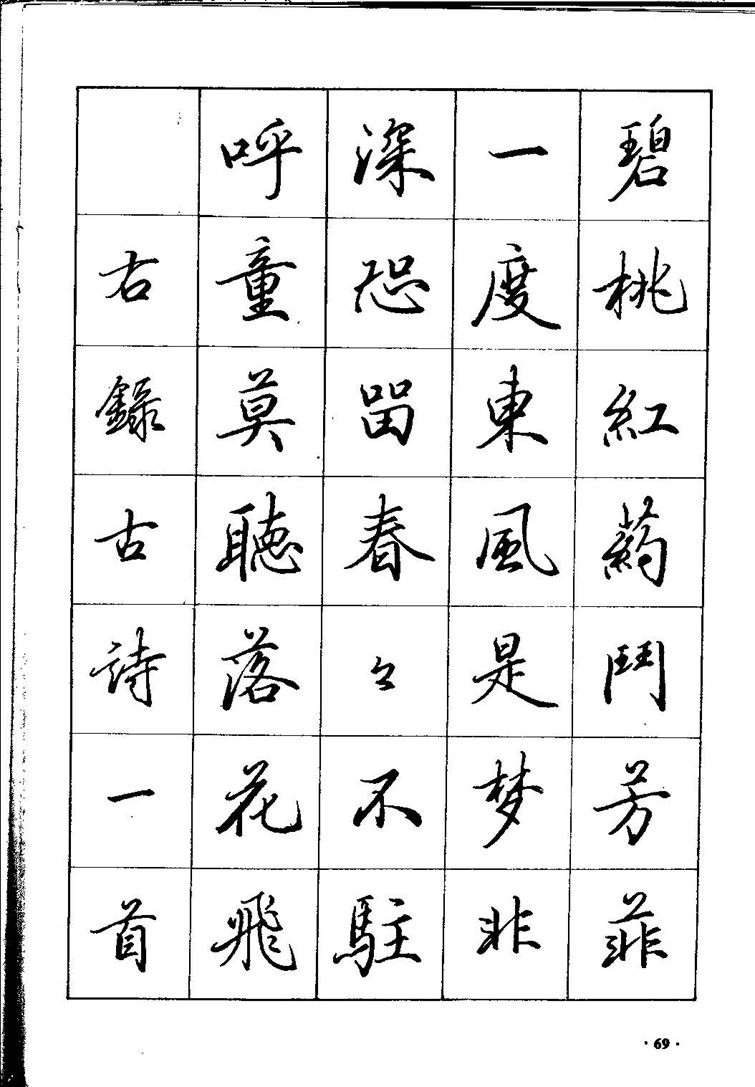 碧桃紅葯鬥芳菲
一度東風是梦非
深恐留春々不駐
呼童莫聽落花飛
右錄古詩一首
·69·